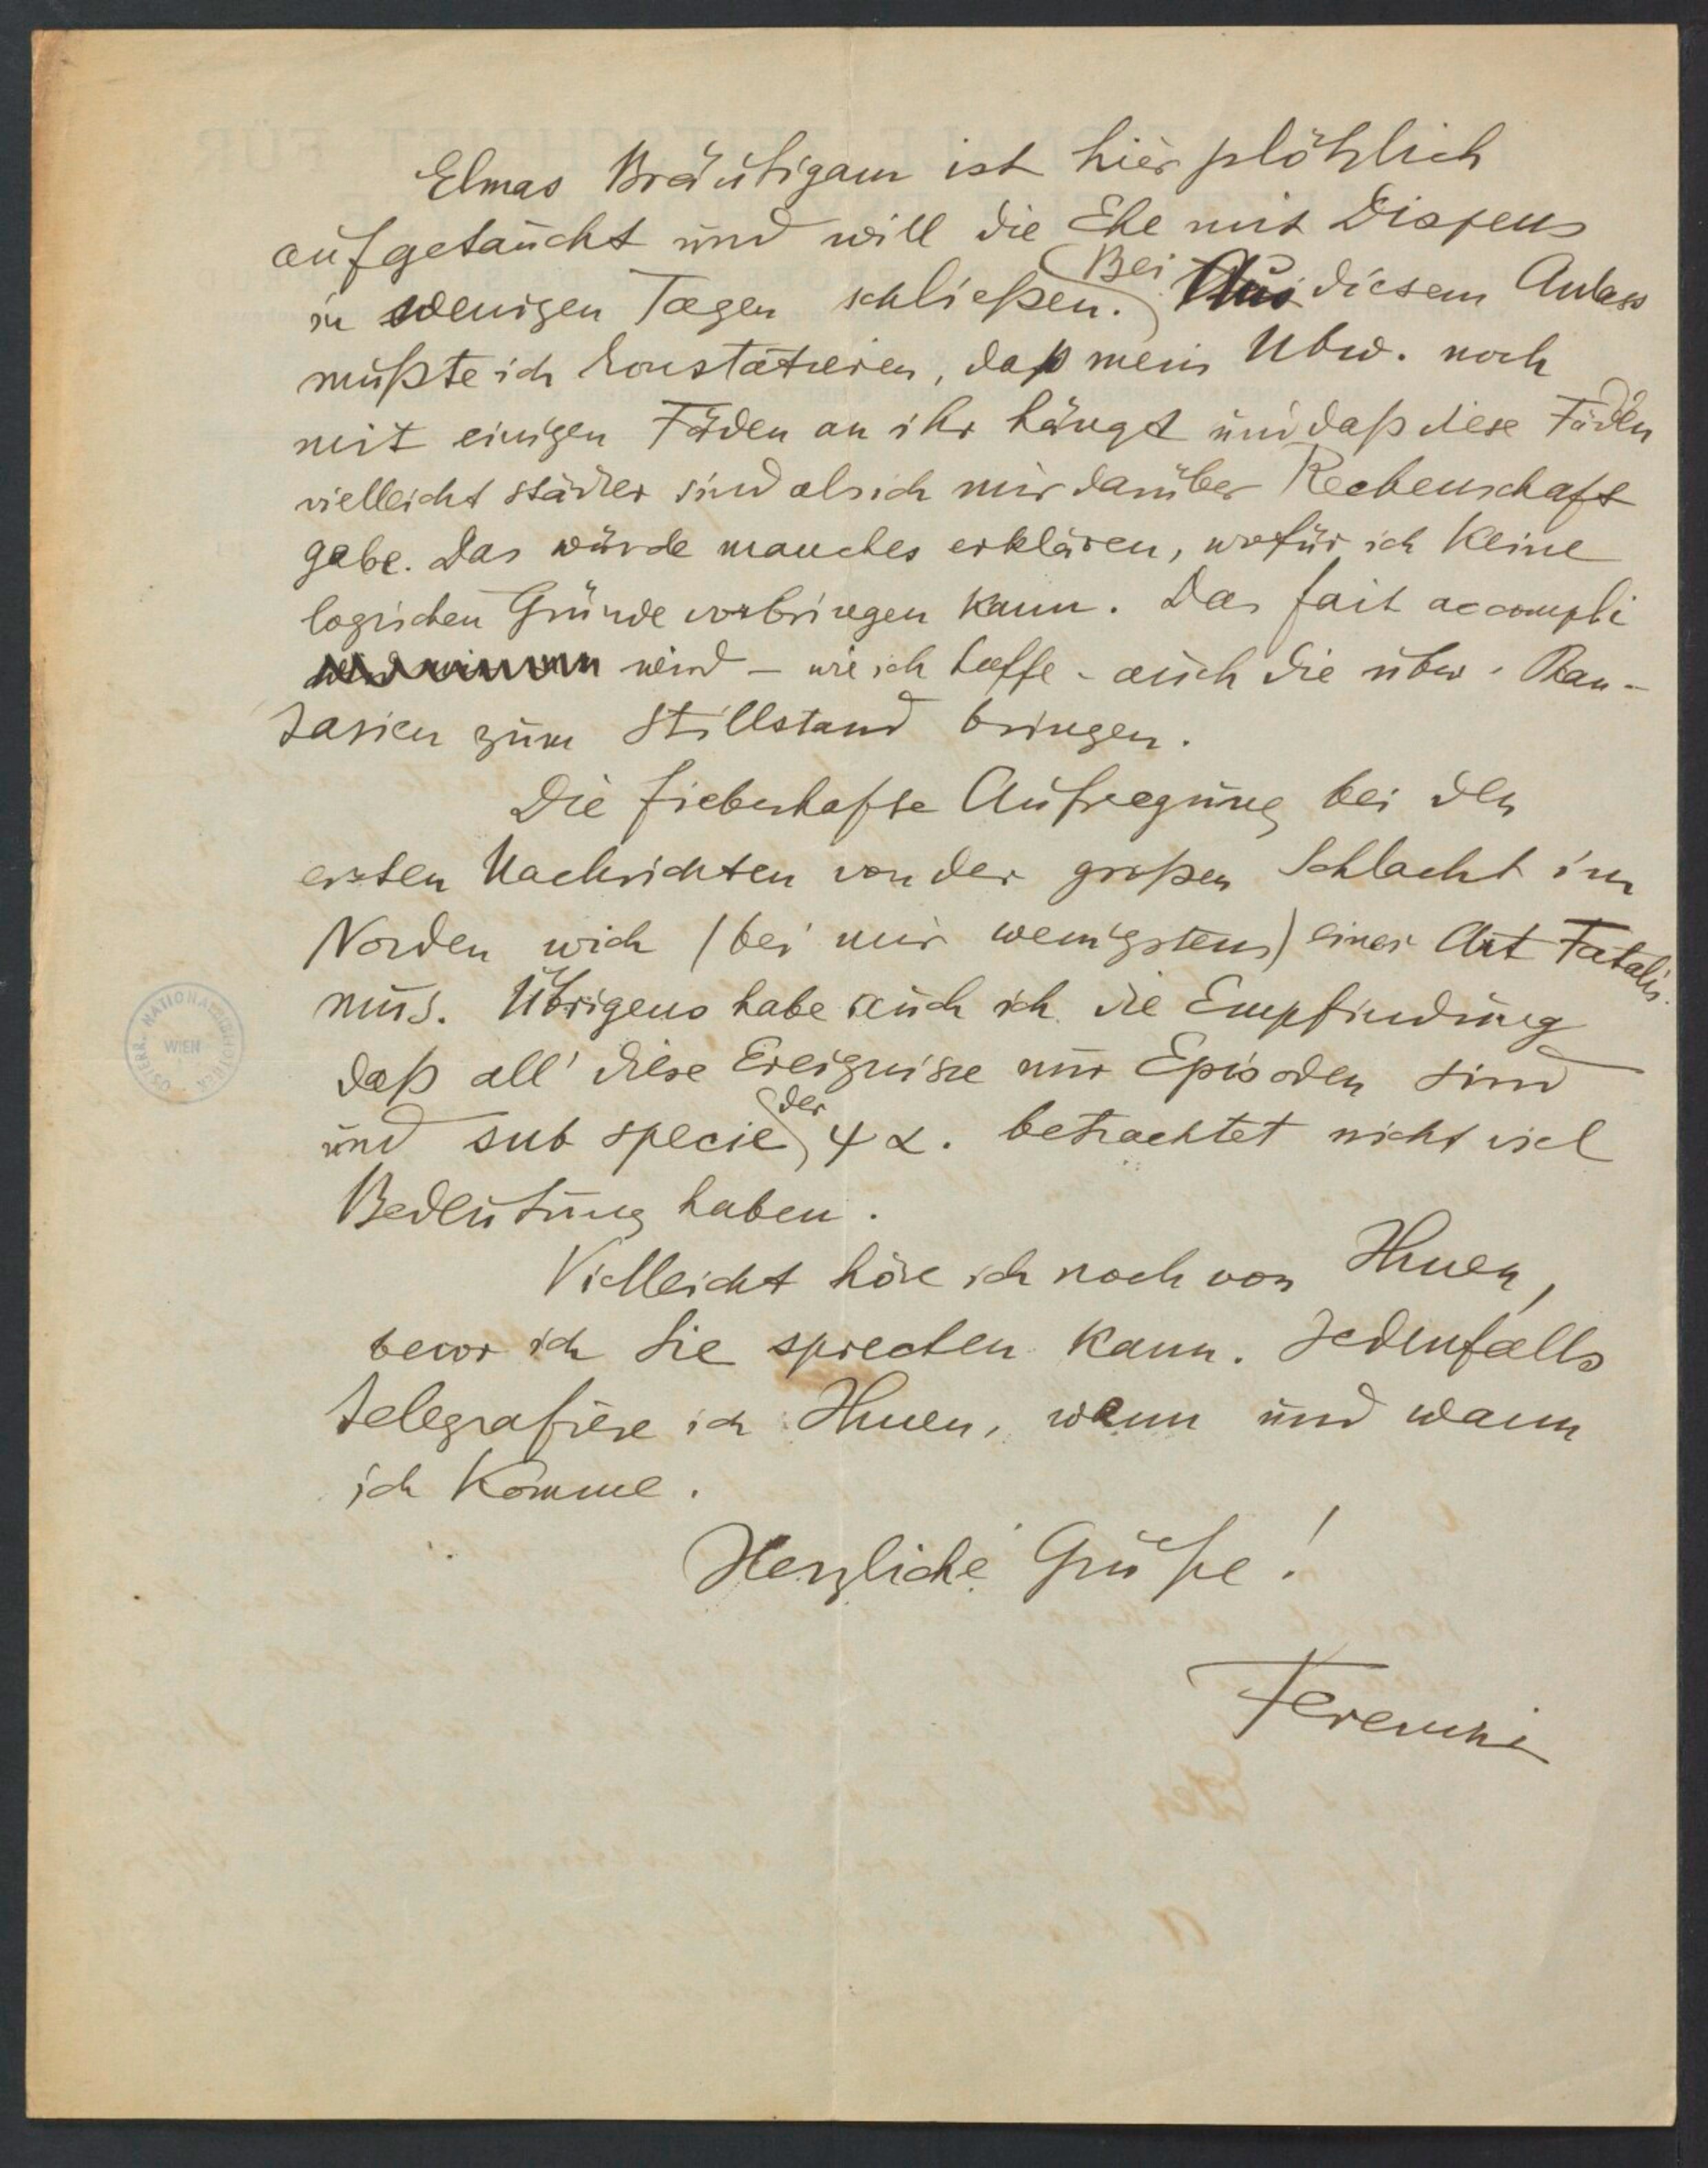 Elmas Bräutigam ist hier plötzlich
aufgetaucht und will die Ehe mit Dispens
in wenigen Tagen schließen. Bei Aus diesem Anlass
mußte ich konstatieren, daß mein Ubw. noch
mit einigen Fäden an ihr hängt und daß diese Fäden
vielleicht stärker sind als ich mir darüber Rechenschaft
gebe. Das würde manches erklären, wofür ich keine
logischen Gründe vorbringen kann. Das fait accompli
wird – wie ich hoffe – auch die ubw. Phan-
tasien zum Stillstand bringen.
Die fieberhafte Aufregung bei den
ersten Nachrichten von der großen Schlacht im
Norden wich (bei mir wenigstens) einer Art Fatalis-
mus. Übrigens habe auch ich die Empfindung
daß all' diese Ereignisse nur Episoden sind
und sub specie der ψα. betrachtet nicht viel
Bedeutung haben.
Vielleicht höre ich noch von Ihnen,
bevor ich Sie sprechen kann. Jedenfalls
telegrafiere ich Ihnen, wenn und wann
ich komme.
Herzliche Grüße!
Ferenczi
ÖSTERR. NATIONALBIBLIOTHEK
WIEN